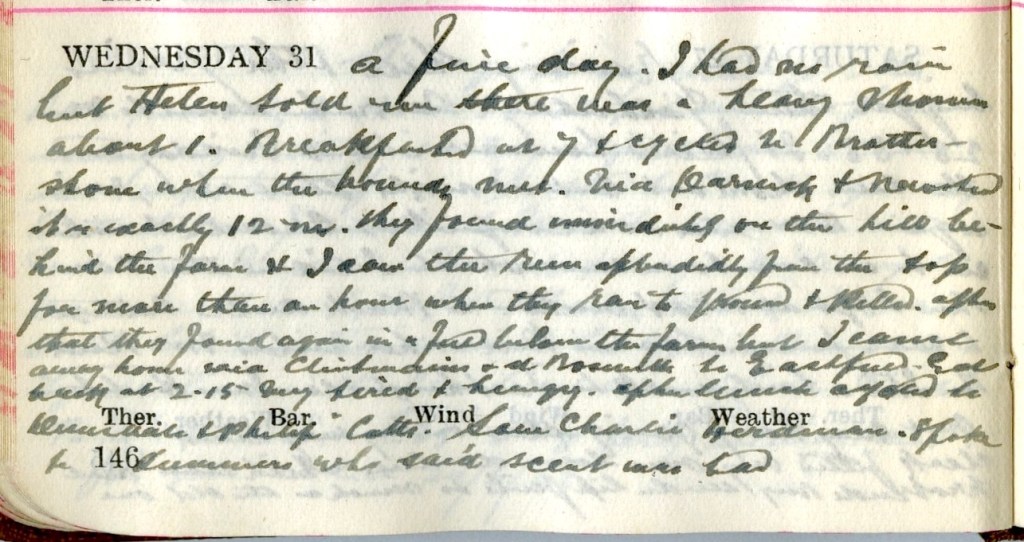 WEDNESDAY 31 a fine day. I had no rain
but Helen told me there was a heavy shower
about 1. Breakfasted at 7 & cycled to Brother-
stone when the hounds met. Via Darnick & Newstead
it is exactly 12 m. They found immediately on the hill be-
hind the farm & I saw the run splendidly from the top
for more than an hour when they ran to ground & killed. After
that they found again in a field below the farm but I came
away home via Clintmains & St Boswells to Eastfield. Got
back at 2.15 very tired & hungry. After lunch cycled to
Ther. Bar. Wind Weather
& Philip Saw Charlie Spoke
146
to Summers who said scent was bad